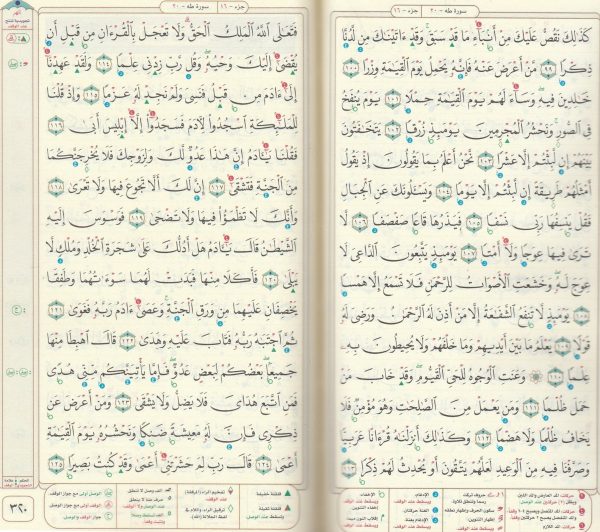 سورة طه - ٢٠ جزء - ١٦
كَذَٰلِكَ نَقُصُّ عَلَيْكَ مِنْ أَنۢبَآءِ مَا قَدْ سَبَقَ وَقَدْ ءَاتَيْنَٰكَ مِن لَّدُنَّا
ذِكْرًا ٩٩ مَّنْ أَعْرَضَ عَنْهُ فَإِنَّهُۥ يَحْمِلُ يَوْمَ ٱلْقِيَٰمَةِ وِزْرًا ١٠٠
خَٰلِدِينَ فِيهِ وَسَآءَ لَهُمْ يَوْمَ ٱلْقِيَٰمَةِ حِمْلًا ١٠١ يَوْمَ يُنفَخُ
فِى ٱلصُّورِ وَنَحْشُرُ ٱلْمُجْرِمِينَ يَوْمَئِذٍ زُرْقًا ١٠٢ يَتَخَٰفَتُونَ
بَيْنَهُمْ إِن لَّبِثْتُمْ إِلَّا عَشْرًا ١٠٣ نَّحْنُ أَعْلَمُ بِمَا يَقُولُونَ إِذْ يَقُولُ
أَمْثَلُهُمْ طَرِيقَةً إِن لَّبِثْتُمْ إِلَّا يَوْمًا ١٠٤ وَيَسْـَٔلُونَكَ عَنِ ٱلْجِبَالِ
فَقُلْ يَنسِفُهَا رَبِّى نَسْفًا ١٠٥ فَيَذَرُهَا قَاعًا صَفْصَفًا ١٠٦ لَّا
تَرَىٰ فِيهَا عِوَجًا وَلَآ أَمْتًا ١٠٧ يَوْمَئِذٍ يَتَّبِعُونَ ٱلدَّاعِىَ لَا
عِوَجَ لَهُۥ وَخَشَعَتِ ٱلْأَصْوَاتُ لِلرَّحْمَٰنِ فَلَا تَسْمَعُ إِلَّا هَمْسًا
١٠٨ يَوْمَئِذٍ لَّا تَنفَعُ ٱلشَّفَٰعَةُ إِلَّا مَنْ أَذِنَ لَهُ ٱلرَّحْمَٰنُ وَرَضِىَ لَهُۥ
قَوْلًا ١٠٩ يَعْلَمُ مَا بَيْنَ أَيْدِيهِمْ وَمَا خَلْفَهُمْ وَلَا يُحِيطُونَ بِهِۦ
عِلْمًا ١١٠ ۞ وَعَنَتِ ٱلْوُجُوهُ لِلْحَىِّ ٱلْقَيُّومِ وَقَدْ خَابَ مَنْ
حَمَلَ ظُلْمًا ١١١ وَمَن يَعْمَلْ مِنَ ٱلصَّٰلِحَٰتِ وَهُوَ مُؤْمِنٌ فَلَا
يَخَافُ ظُلْمًا وَلَا هَضْمًا ١١٢ وَكَذَٰلِكَ أَنزَلْنَٰهُ قُرْءَانًا عَرَبِيًّا
وَصَرَّفْنَا فِيهِ مِنَ ٱلْوَعِيدِ لَعَلَّهُمْ يَتَّقُونَ أَوْ يُحْدِثُ لَهُمْ ذِكْرًا ١١٣
جزء - ١٦ سورة طه - ٢٠
فَتَعَٰلَى ٱللَّهُ ٱلْمَلِكُ ٱلْحَقُّ وَلَا تَعْجَلْ بِٱلْقُرْءَانِ مِن قَبْلِ أَن
يُقْضَىٰٓ إِلَيْكَ وَحْيُهُۥ وَقُل رَّبِّ زِدْنِى عِلْمًا ١١٤ وَلَقَدْ عَهِدْنَآ
إِلَىٰٓ ءَادَمَ مِن قَبْلُ فَنَسِىَ وَلَمْ نَجِدْ لَهُۥ عَزْمًا ١١٥ وَإِذْ قُلْنَا
لِلْمَلَٰٓئِكَةِ ٱسْجُدُوا۟ لِءَادَمَ فَسَجَدُوٓا۟ إِلَّآ إِبْلِيسَ أَبَىٰ ١١٦
فَقُلْنَا يَٰٓـَٔادَمُ إِنَّ هَٰذَا عَدُوٌّ لَّكَ وَلِزَوْجِكَ فَلَا يُخْرِجَنَّكُمَا
مِنَ ٱلْجَنَّةِ فَتَشْقَىٰٓ ١١٧ إِنَّ لَكَ أَلَّا تَجُوعَ فِيهَا وَلَا تَعْرَىٰ ١١٨
وَأَنَّكَ لَا تَظْمَؤُا۟ فِيهَا وَلَا تَضْحَىٰ ١١٩ فَوَسْوَسَ إِلَيْهِ
ٱلشَّيْطَٰنُ قَالَ يَٰٓـَٔادَمُ هَلْ أَدُلُّكَ عَلَىٰ شَجَرَةِ ٱلْخُلْدِ وَمُلْكٍ لَّا
يَبْلَىٰ ١٢٠ فَأَكَلَا مِنْهَا فَبَدَتْ لَهُمَا سَوْءَٰتُهُمَا وَطَفِقَا
يَخْصِفَانِ عَلَيْهِمَا مِن وَرَقِ ٱلْجَنَّةِ وَعَصَىٰٓ ءَادَمُ رَبَّهُۥ فَغَوَىٰ ١٢١
ثُمَّ ٱجْتَبَٰهُ رَبُّهُۥ فَتَابَ عَلَيْهِ وَهَدَىٰ ١٢٢ قَالَ ٱهْبِطَا مِنْهَا
جَمِيعًۢا بَعْضُكُمْ لِبَعْضٍ عَدُوٌّ فَإِمَّا يَأْتِيَنَّكُم مِّنِّى هُدًى
فَمَنِ ٱتَّبَعَ هُدَاىَ فَلَا يَضِلُّ وَلَا يَشْقَىٰ ١٢٣ وَمَنْ أَعْرَضَ عَن
ذِكْرِى فَإِنَّ لَهُۥ مَعِيشَةً ضَنكًا وَنَحْشُرُهُۥ يَوْمَ ٱلْقِيَٰمَةِ
أَعْمَىٰ ١٢٤ قَالَ رَبِّ لِمَ حَشَرْتَنِىٓ أَعْمَىٰ وَقَدْ كُنتُ بَصِيرًا ١٢٥
٣٢٠